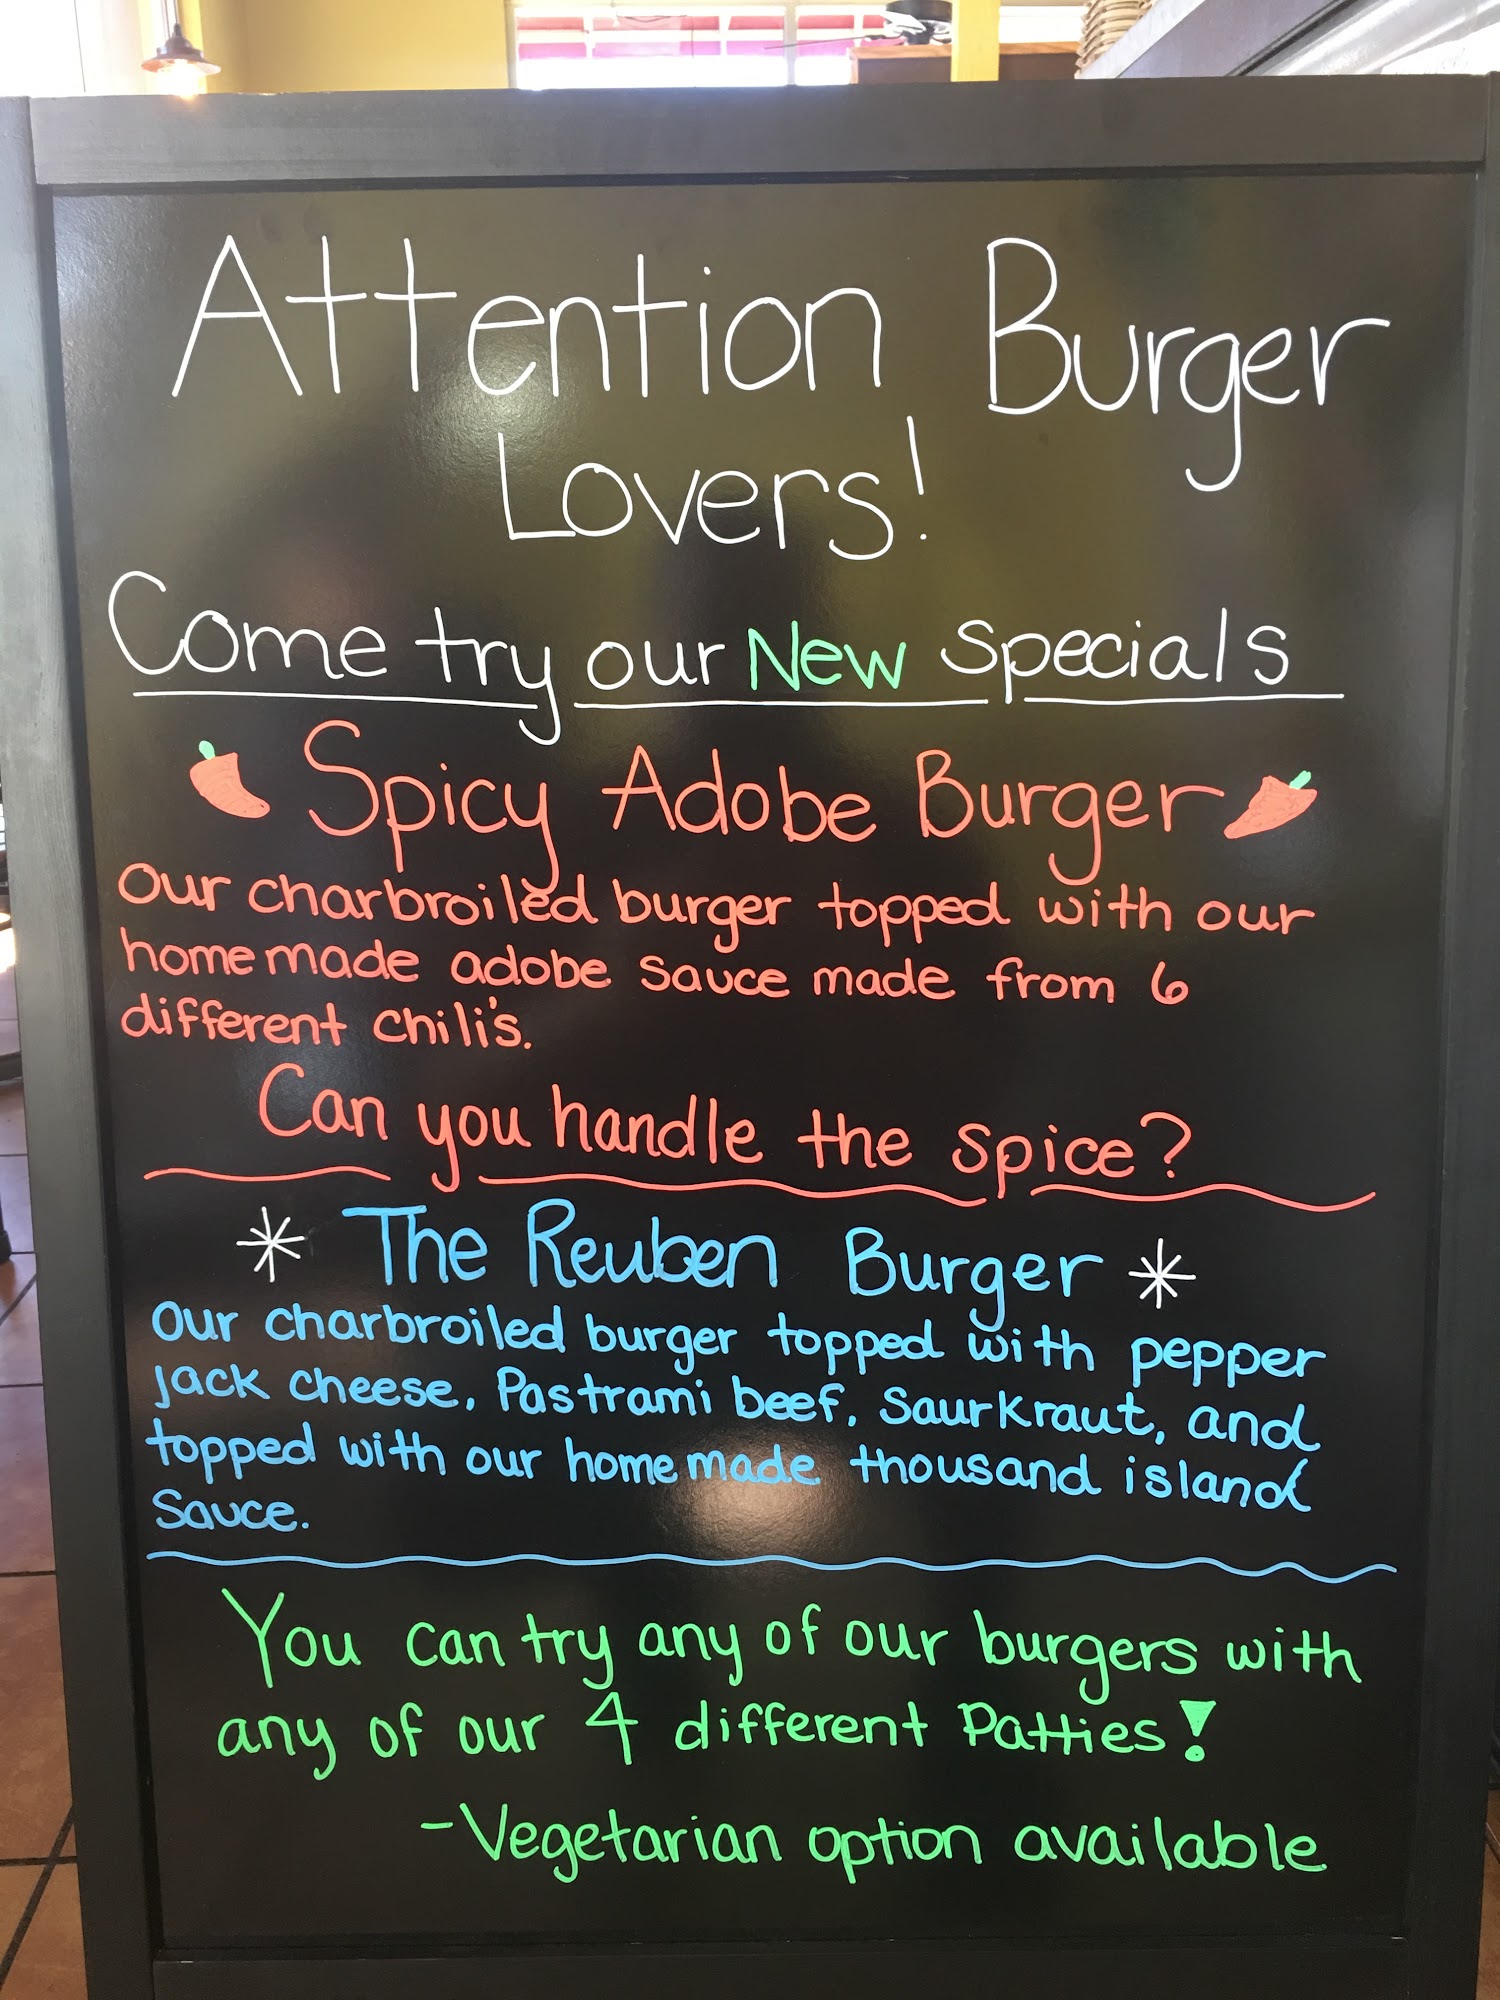 Attention Burger
Lovers!
Come try our New specials
Spicy Adobe Burger
Our charbroiled burger topped with our
homemade adobe sauce made from 6
different chili's.
Can you handle the spice?
The Reuben Burger
Our charbroiled burger topped with pepper
jack cheese, Pastrami beef, Saurkraut, and
topped with our homemade thousand island
sauce.
You can try any of our burgers with
any of our 4 different Patties!
- Vegetarian option available